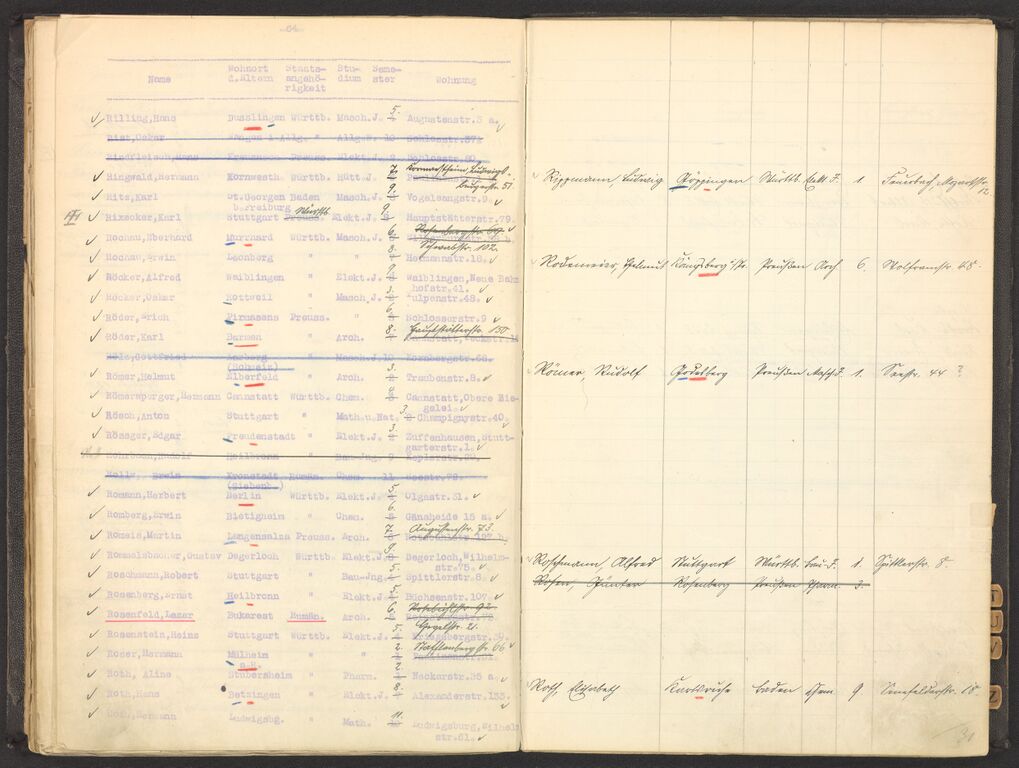 -64-
Name Wohnort d.Eltern Staats-angehö-rigkeit Stu-dium Seme-ster Wohnung
Rilling,Hans Dusslingen Württb. Masch.J. 5. Augustenstr.3 a.
Rist,Oskar Wangen i.Allg. " Allg.B. 10 Schlosstr.57½
Rindfleisch,Hans Preuss. Elekt.J.
Ringwald,Hermann Kornwesth. Württb. Hütt.J. 7. Kornwestheim, Ludwigs-
burgerstr. 51.
Ritz,Karl St.Georgen Baden Masch.J. 9. Vogelsangstr.9.
b.Freiburg Württb
Rixecker,Karl Stuttgart Preuss. Elekt.J. 9. Hauptstätterstr.79.
Rochau,Eberhard Murrhard Württb. Masch.J. 6.
Schwabstr. 102.
Rochau,Erwin Leonberg " " 8. Hermannstr.16.
Röcker,Alfred Waiblingen " Elekt.J. Waiblingen,Neue Bahn-
hofstr.41.
Röcker,Oskar Rottweil " Masch.J. 3. Tulpenstr.48.
Röder,Erich Pirmasens Preuss. " 6. Schlosserstr.9
Röder,Karl Barmen " Arch. 8. Hauptstätterstr. 150.
Rölz,Gottfried Masch.J. 10 Kornbergstr.66.
(Schweiz)
Römer,Helmut Elberfeld " Arch. 3. Traubenstr.8.
Römersperger,Hermann Cannstatt Württb. Chem. Cannstatt,Obere Zie-
gelei.
Rösch,Anton Stuttgart " Math.u.Nat. 3. Champignystr.40.
Rössger,Edgar Freudenstadt " Elekt.J. 3. Zuffenhausen,Stutt-
garterstr.1.
Rudolf Heilbronn " Bau-Ing. 9 Keplerstr.
Erwin Kronstadt Rumän. Chem. 11 Seestr.78.
(Siebenb.)
Romann,Herbert Berlin Württb. Elekt.J. 5. Olgastr.31.
Romberg,Erwin Bietigheim " Chem. 6. Gänsheide 15 a.
Romeis,Martin Langensalza Preuss. Arch. 7. Augustenstr. 73.
Rommelsbacher,Gustav Degerloch Württb. Elekt.J. 9. Degerloch,Wilhelm-
str.75.
Roschmann,Robert Stuttgart " Bau-Jng. 5. Spittlerstr.8.
Rosenberg,Ernst Heilbronn " Elekt.J. 5. Büchsenstr.107.
Rosenfeld,Lazar Bukarest Rumän. Arch. 6. Rotebühlstr. 92
Hegelstr. 21.
Rosenstein,Heinz Stuttgart Württb. Elekt.J. 5. Kriegsbergstr.39.
Roser,Hermann Mülheim " " 2. Stafflenbergstr. 66
a.R.
Roth, Aline Stubersheim " Pharm. 2. Neckarstr.36 a.
Roth,Hans Betzingen " Elekt.J. 8. Alexanderstr.153.
Roth,Hermann Ludwigsbg. " Math. 11. Ludwigsburg,Wilhelm-
str.61.
Rippmann, Ludwig Göppingen Württb. Elekt. J. 1. Feuerbach, Mozartstr.
12.
Rodemeier, Königsberg i/Pr. Preußen Arch 6. Wolframstr. 68.
Römer, Rudolf Godesberg Preußen Masch. J. 1. Seestr. 44 ?
Roschmann, Alfred Stuttgart Württb. Bau-J. 1. Spittlerstr. 8
Rosen, Günter Rosenberg Preußen Pharm. 3.
Roth, Elisabeth Karlsruhe Baden Chem. 9 Senefelderstr. 18
31